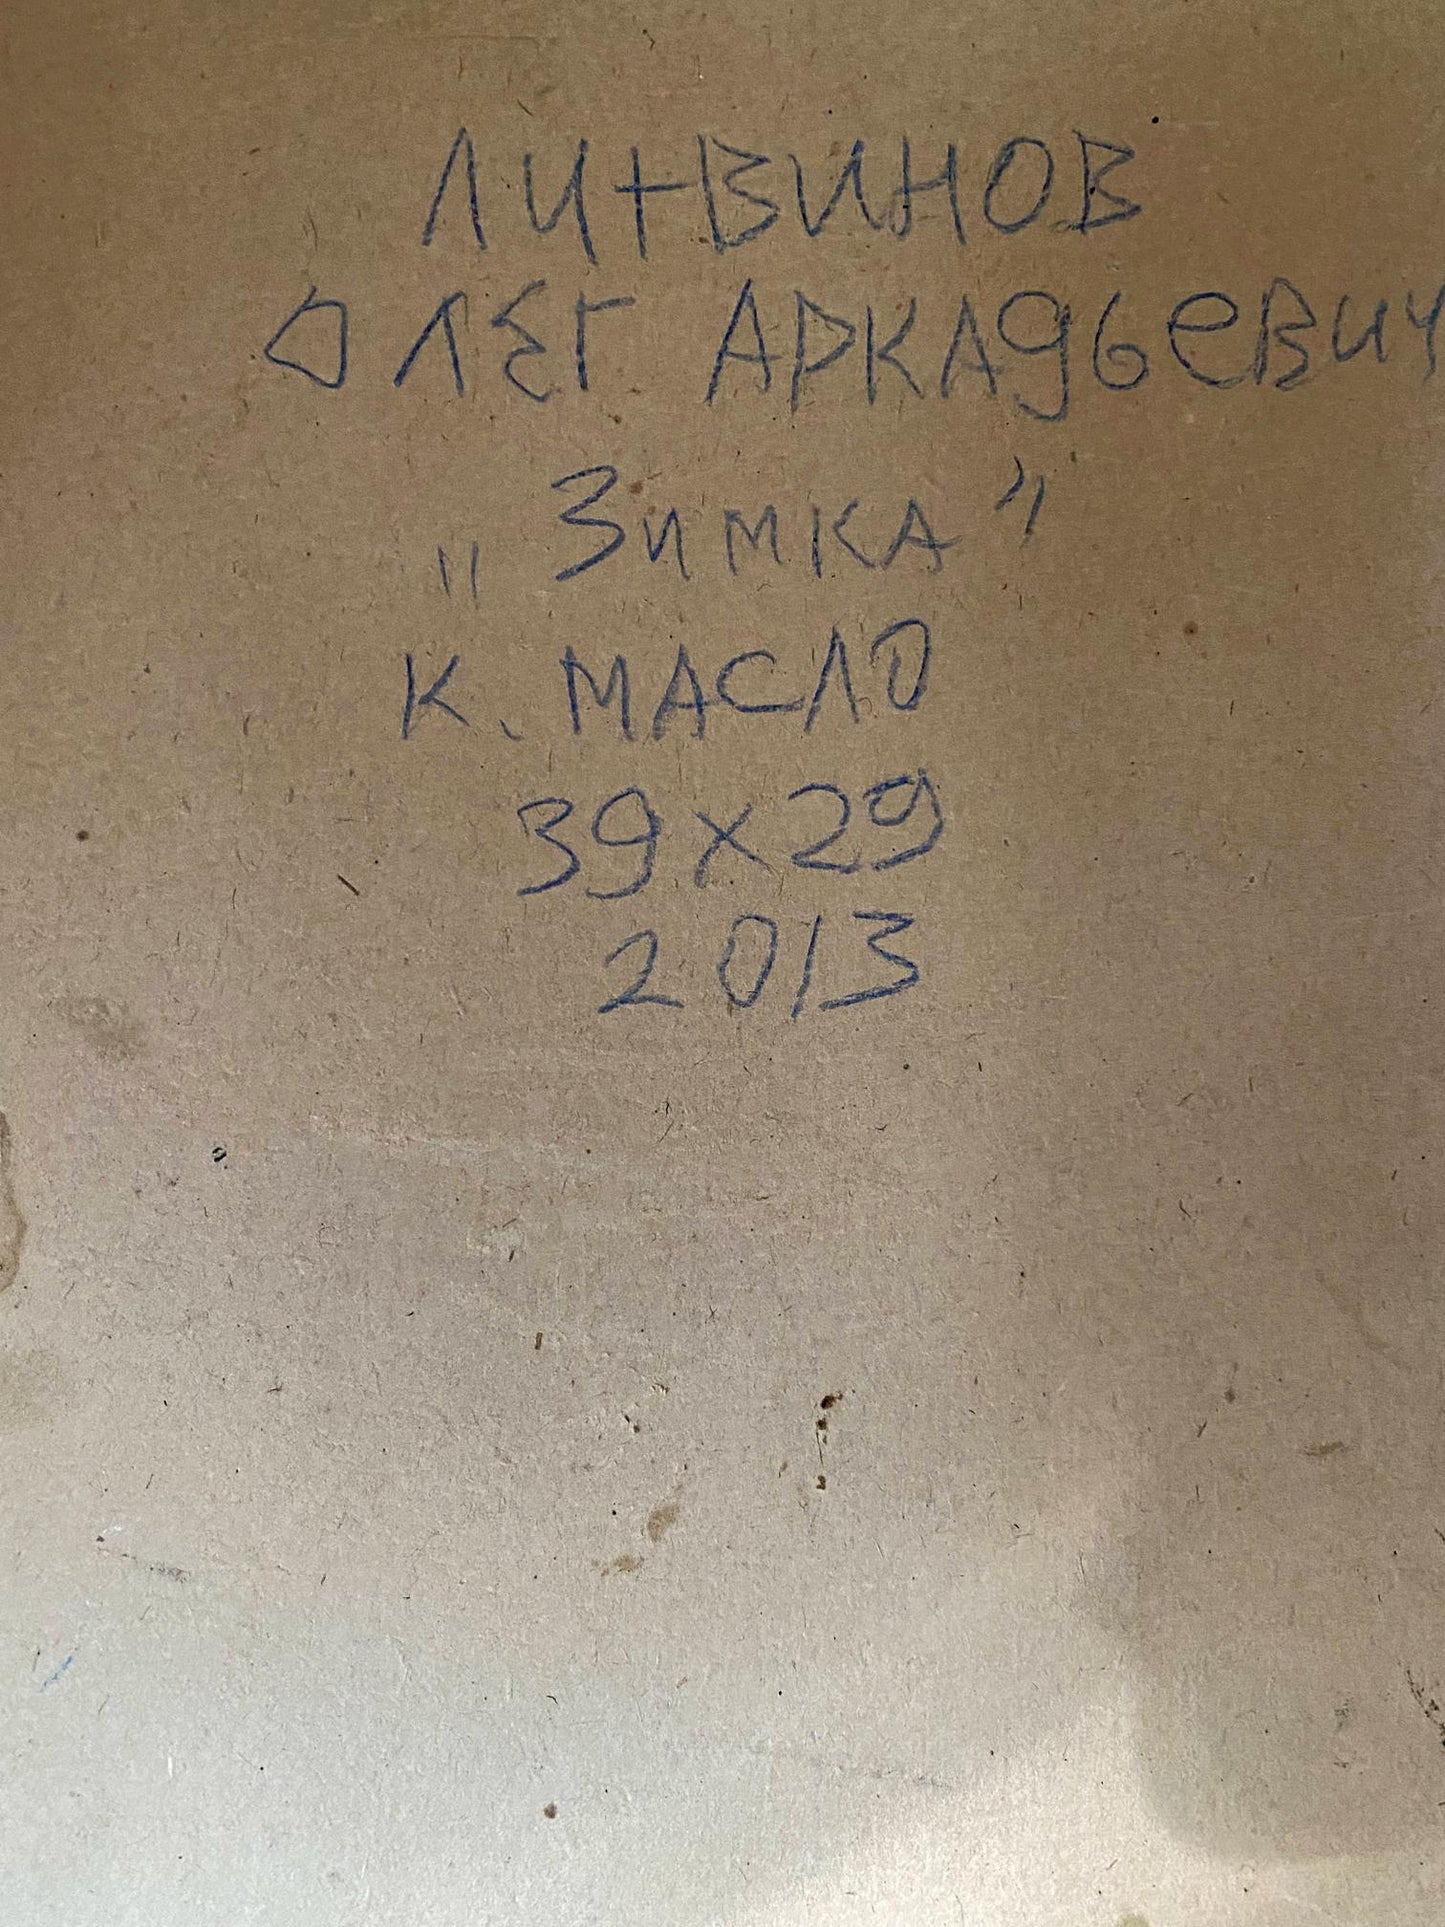 ЛИТВИНОВ
ОЛЕГ АРКАДЬЕВИЧ
„Зимка"
К. МАСЛО
39х29
2013